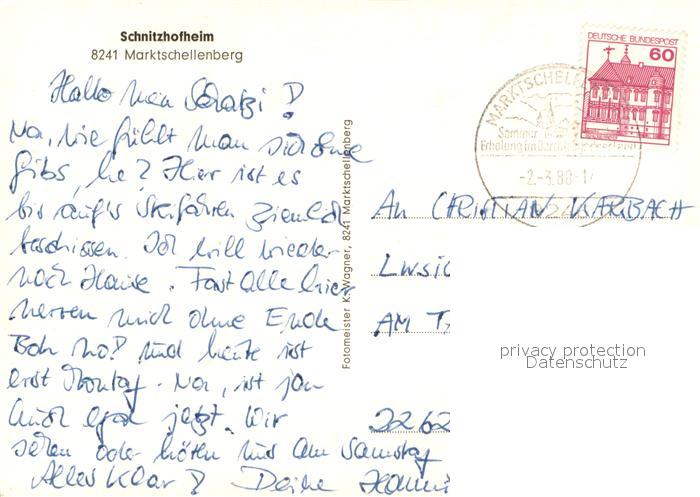 Schnitzhofheim
8241 Marktschellenberg
Hallo mein Schatzi!
Na, wie fühlt man sich ohne
Gibs, he? Hier ist es
bis auf's Skifahren ziemlich
beschissen. Ich will wieder
nach Hause. Fast alle hier
nerven mich ohne Ende
Boh no! Und heute ist
erst Montag. Na, ist ja
auch egal jetzt. Wir
sehen oder hören uns am Samstag
Alles Klar? Deine
Fotomeister K. Wagner, 8241 Marktschellenberg
DEUTSCHE BUNDESPOST
60
MARKTSCHELLE
Sommer
Erholung im
-2.-3.88-1
8241
An CHRISTIAN KARBACH
AM
2262
privacy protection
Datenschutz